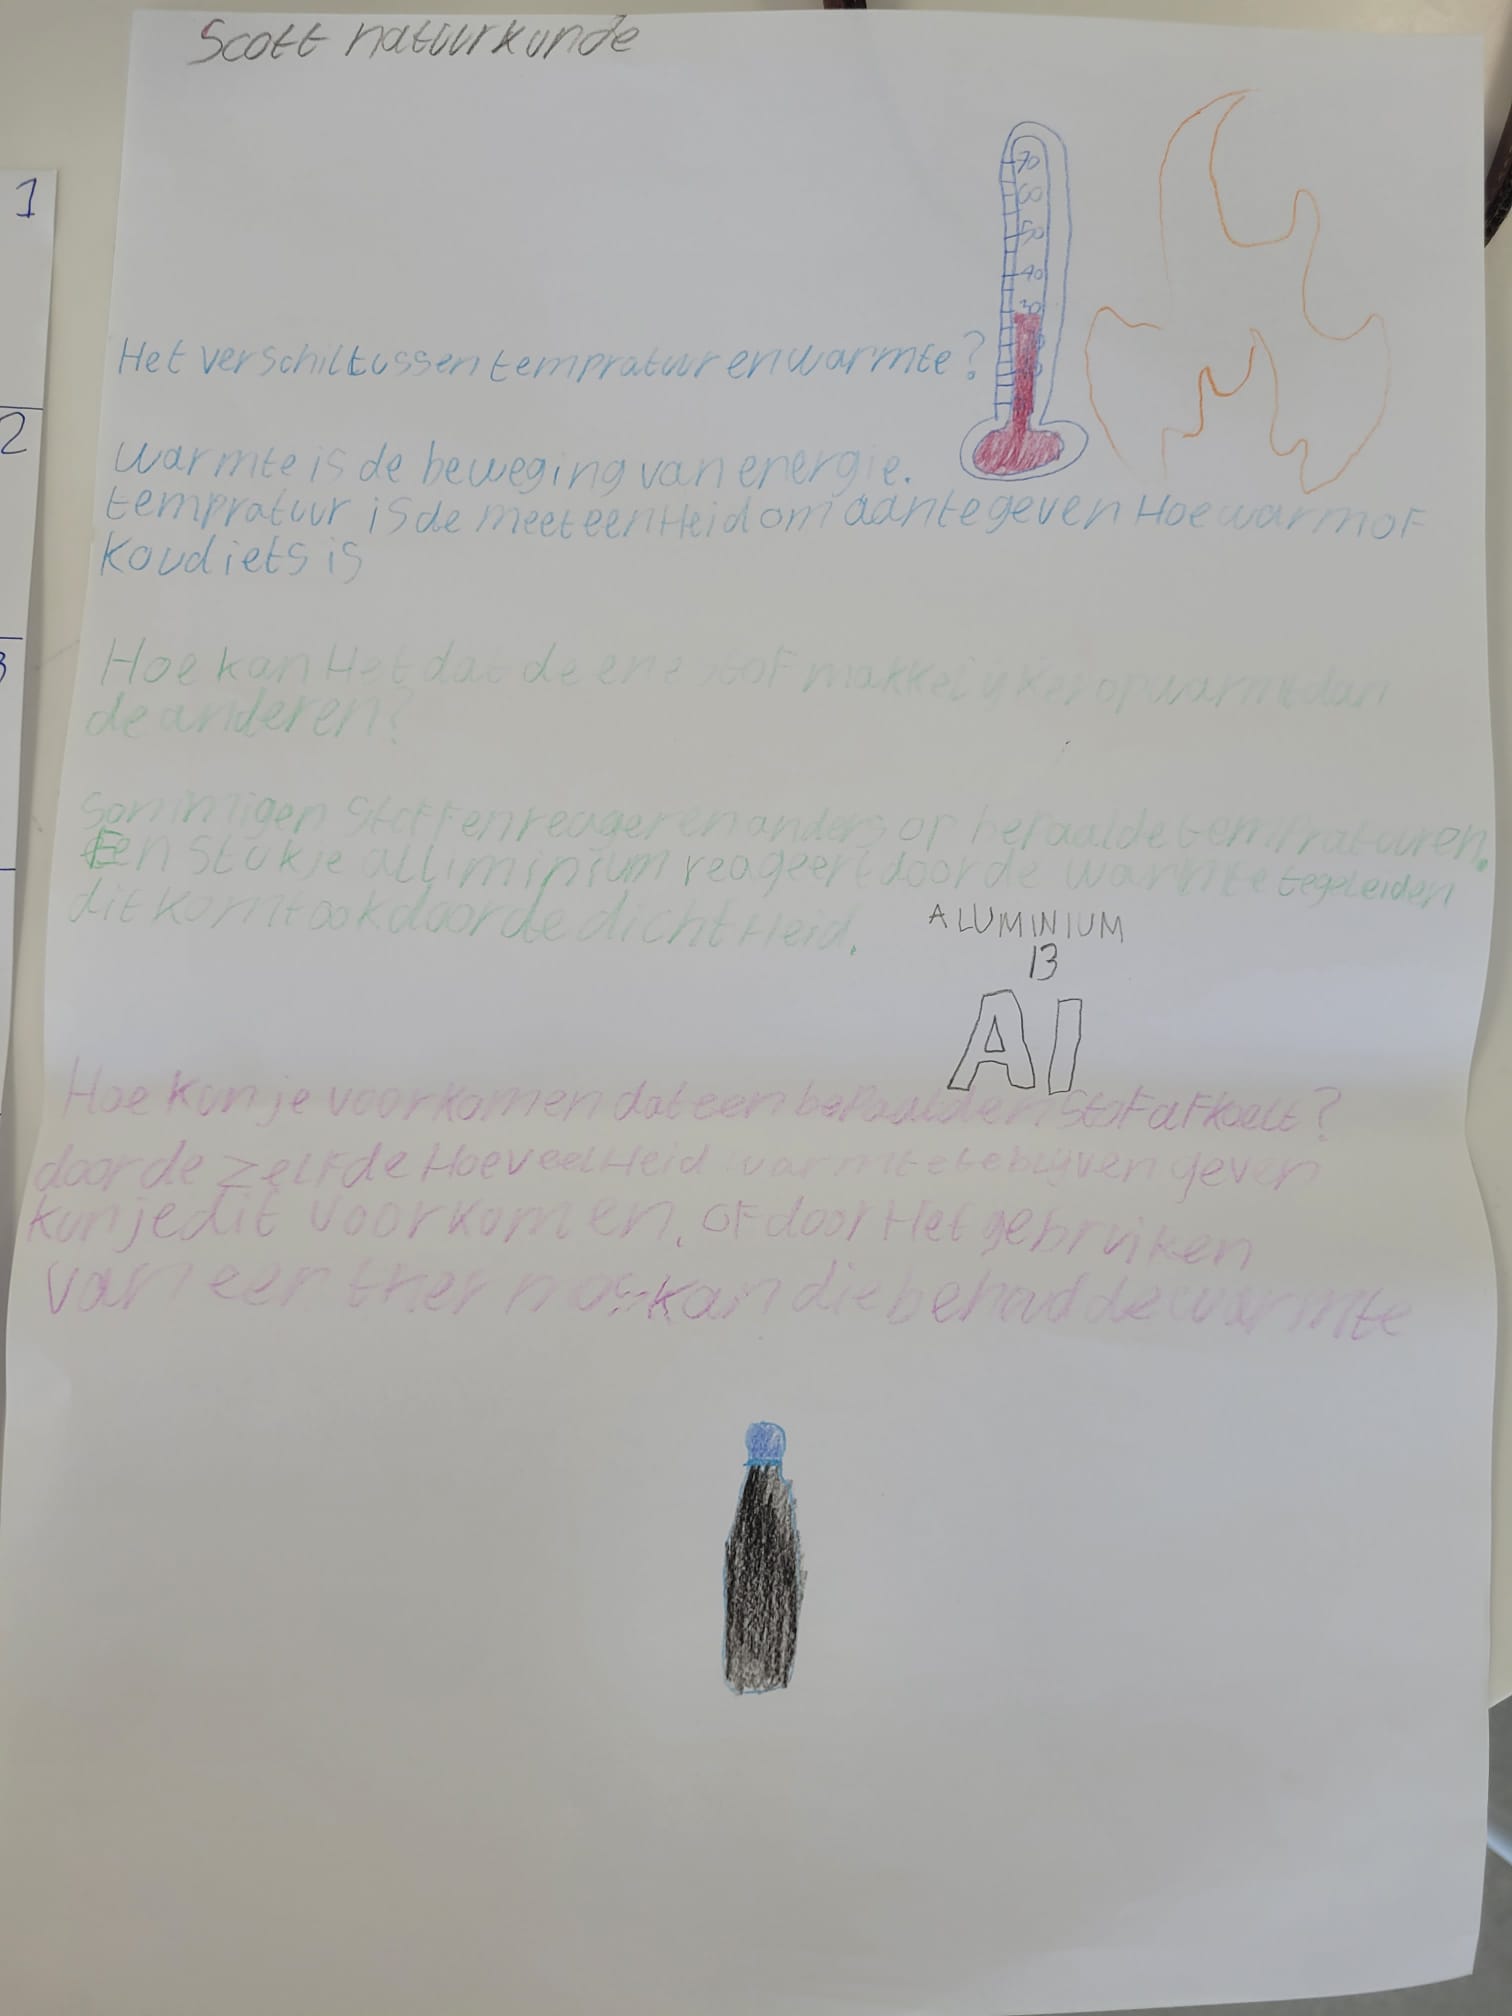 Scott natuurkunde
1
2
3
70
Het verschil tussen tempratuur en warmte?
warmte is de beweging van energie.
tempratuur is de meeteenHeid om aan te geven Hoe warm of
koud iets is
Hoe kan Het dat de ene stof makkelijker opwarmt dan
de anderen?
Sommigen stoffen reageren anders op bepaalde tempraturen.
Een stukje alliminium reageert door de warmte te geleiden
dit komt ook door de dichtHeid.
ALUMINIUM
13
Al
Hoe kun je voorkomen dat een bepaalden stof afkoelt?
door de zelfde HoeveelHeid warmte te blijven geven
kun je dit voorkomen, of door Het gebruiken
van een thermoskan die behoud de warmte